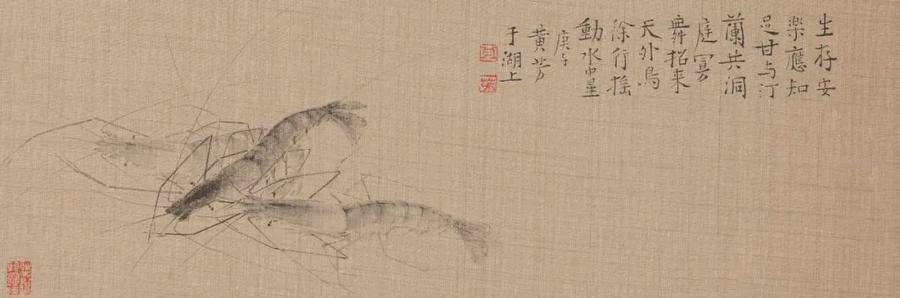 生存安
樂應知
足甘与汀
蘭共洞
庭冥
舞招来
天外鳥
徐行摇
動水中星
庚子
黄芳
于湖上